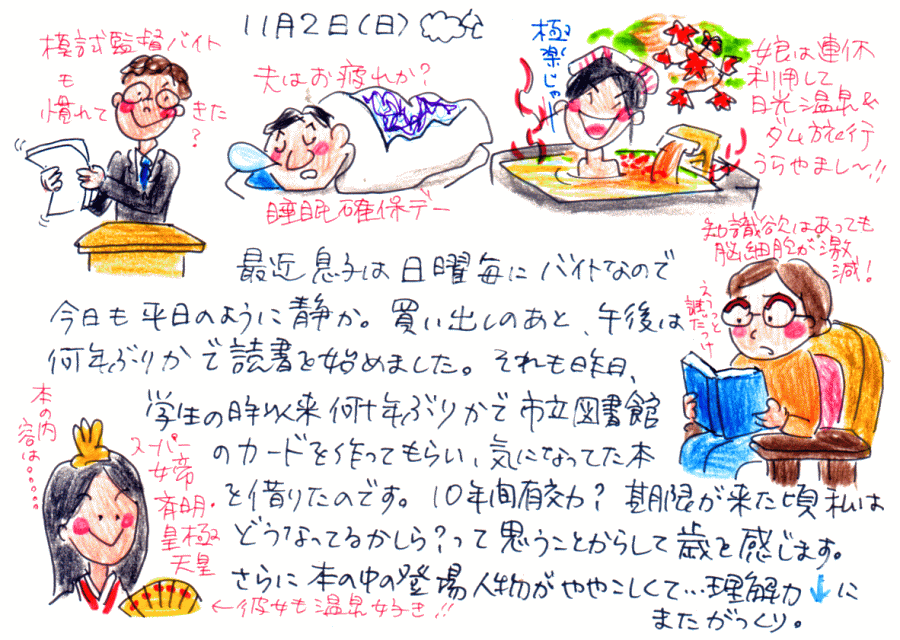 11月2日(日)
模試監督バイト
も
慣れてきた
?
夫はお疲れか?
睡眠確保デー
極楽じゃー
娘は連休
利用して
日光温泉&
ダム旅行
うらやまし〜!!
知識欲はあっても
脳細胞が激
減!
えーっと
誰だっけ
最近息子は日曜毎にバイトなので
今日も平日のように静か。買い出しのあと、午後は
何年ぶりかで読書を始めました。それも昨日、
学生の時以来何十年ぶりかで市立図書館
のカードを作ってもらい、気になってた本
を借りたのです。10年間有効?期限が来た頃私は
どうなってるかしら?って思うことからして歳を感じます。
さらに本の中の登場人物がややこしくて…理解力↓に
またがっくり。
本の内
容は。。。。。
スーパー
女帝
斉明・
皇極
天皇
←彼女も温泉好き!!